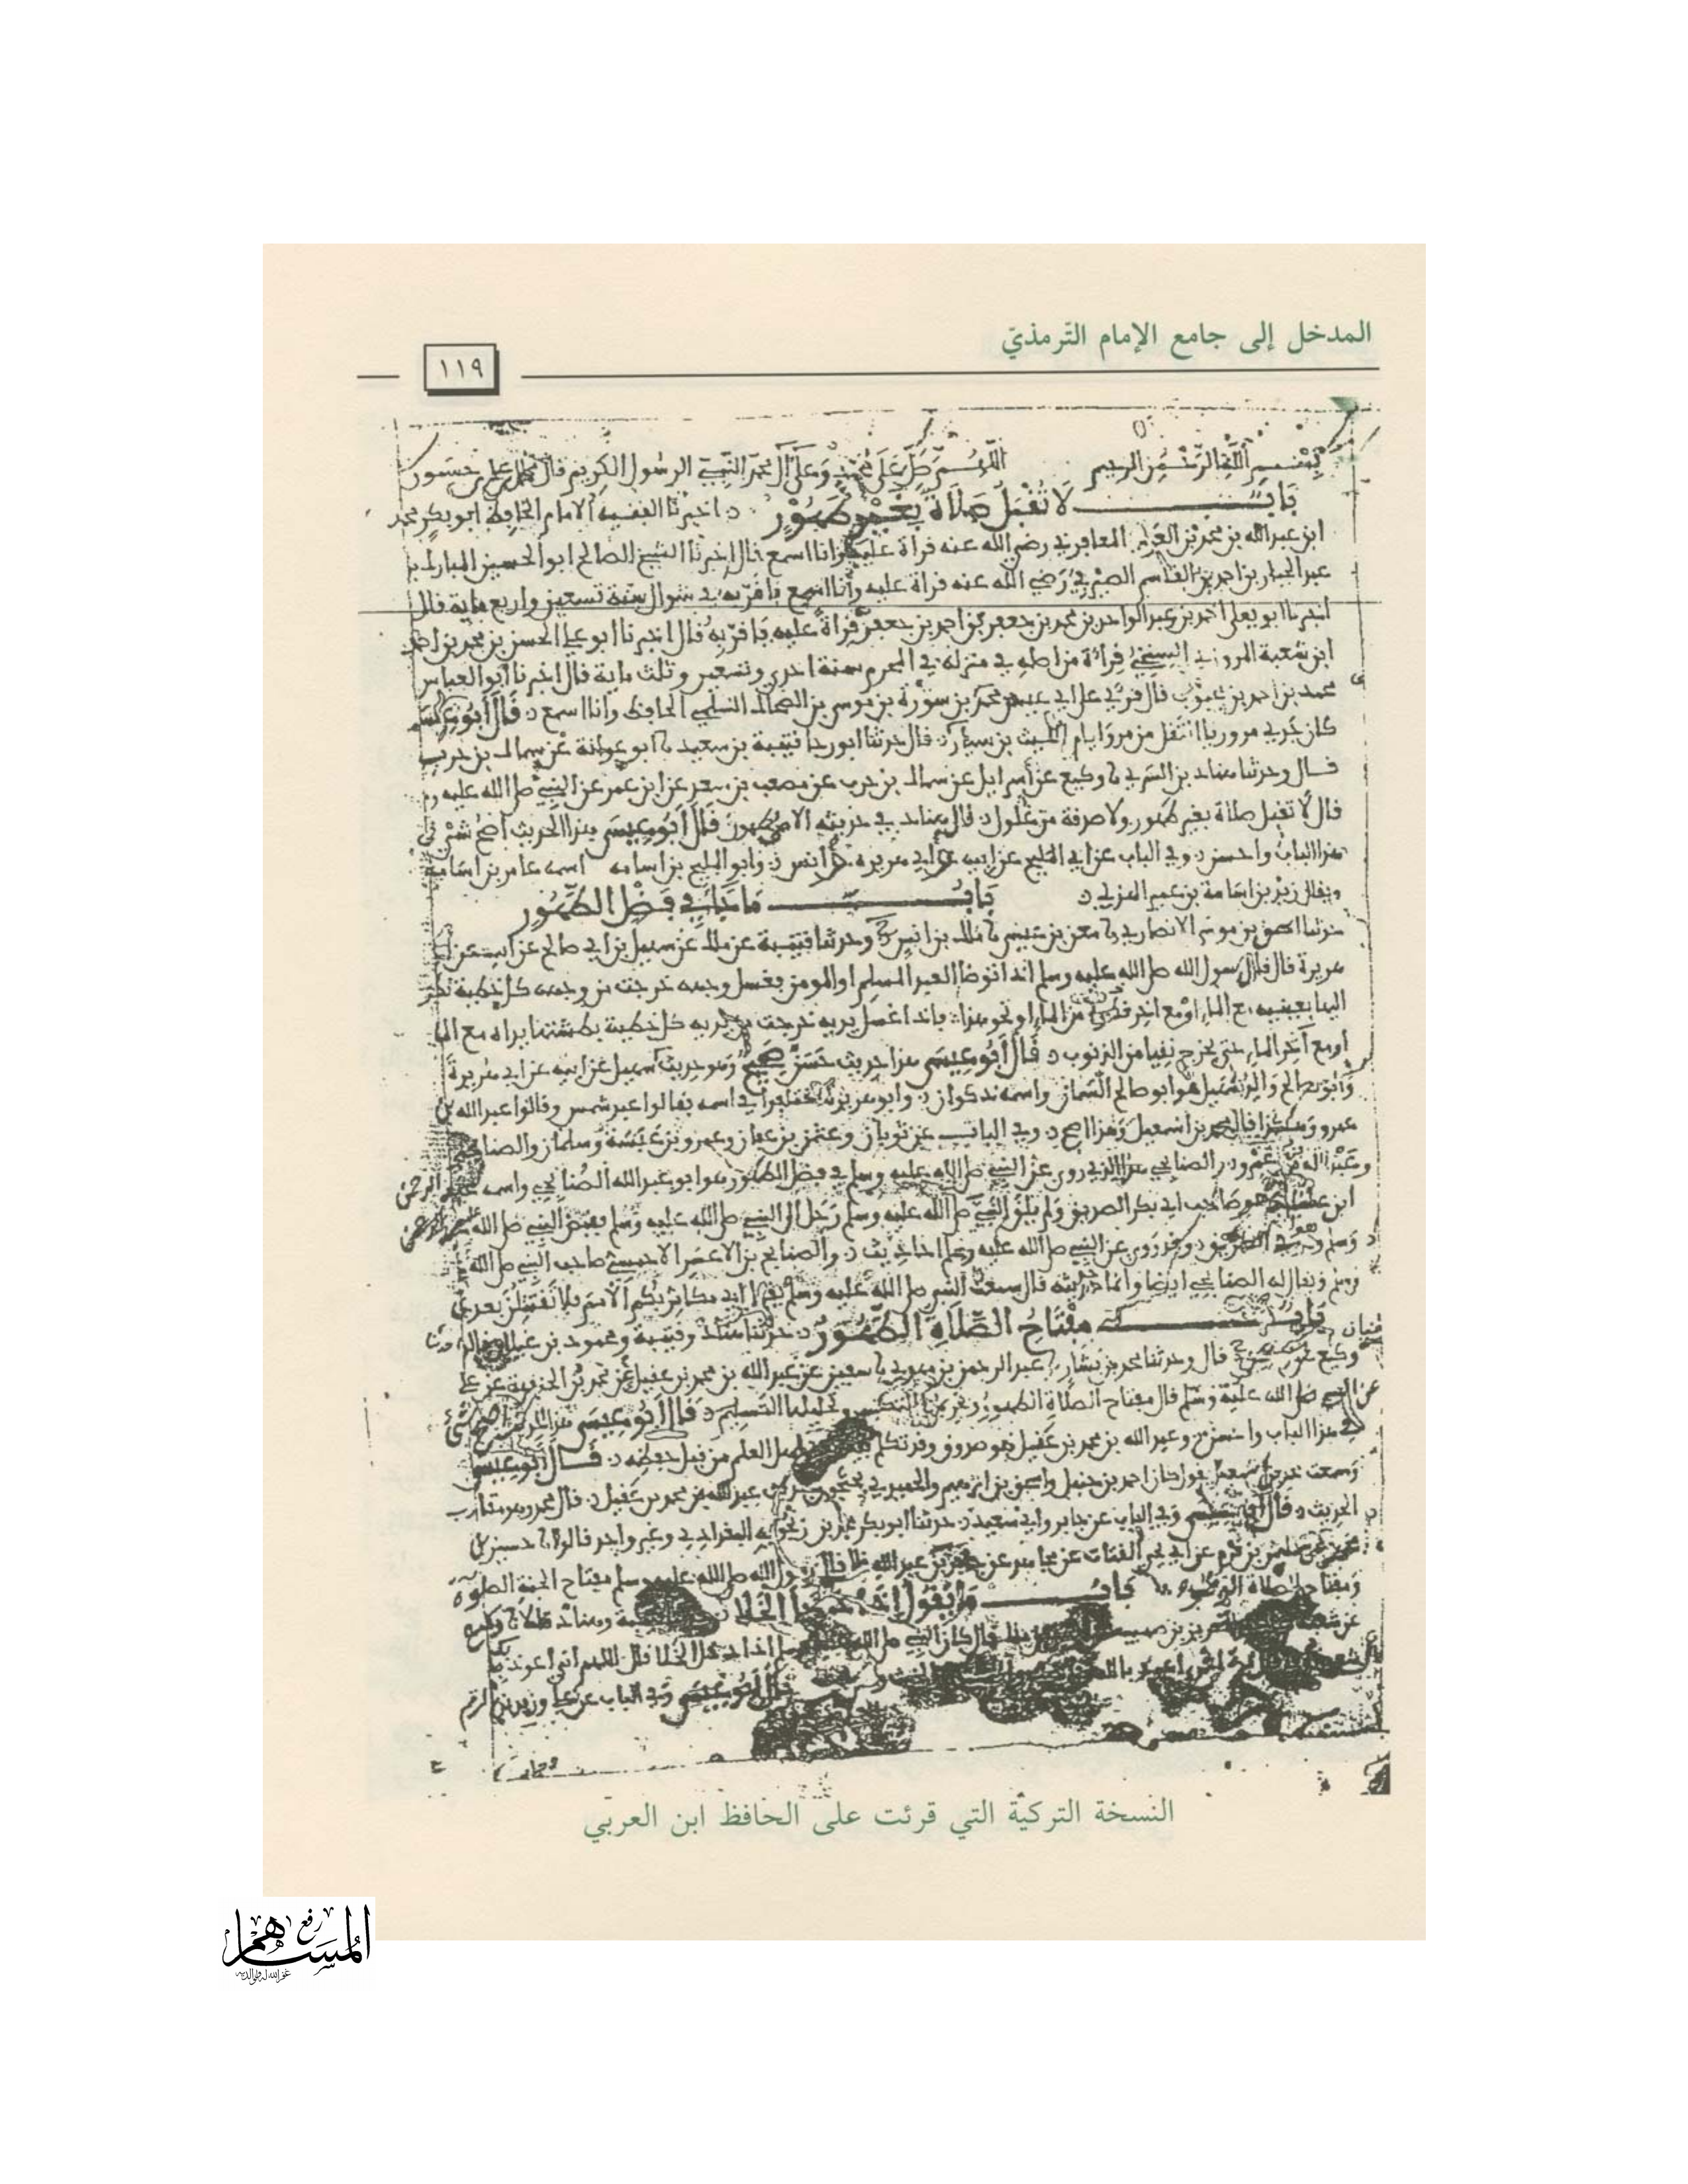 المدخل إلى جامع الإمام التّرمذيّ
١١٩
بسم الله الرحمن الرحيم اللهم صل على محمد وعلى آل محمد النبي الرسول الكريم قال
باب لا تقبل صلاة بغير طهور اخبرنا الفقيه الامام الحافظ ابو بكر محمد
ابن عبد الله بن محمد بن العربي المعافري رضي الله عنه قراة عليه وانا اسمع قال اخبرنا الشيخ الصالح ابو الحسين المبارك بن
عبد الجبار بن احمد بن القاسم الصيرفي رضي الله عنه قراة عليه وأنا اسمع فاقر به في شوال سنة تسعين واربع ماية قال
اخبرنا ابو يعلى احمد بن عبد الواحد بن محمد بن جعفر بن احمد بن جعفر قراة عليه فاقر به قال اخبرنا ابو علي الحسن بن محمد بن احمد
ابن شعبة المروزي السنجي قراة من اصله في منزله في المحرم سنة احدى وتسعين وثلث ماية قال اخبرنا أبو العباس
محمد بن احمد بن محبوب قال قرئ على ابي عيسى محمد بن سورة بن موسى بن الضحاك السلمي الحافظ وأنا اسمع قال أبو عيسى
كان جدي مروزيا انتقل من مرو ايام الليث بن سيار قال حدثنا ابو رجا قتيبة بن سعيد نا ابو عوانة عن سماك بن حرب
قال وحدثنا هناد بن السري نا وكيع عن اسرايل عن سماك بن حرب عن مصعب بن سعد عن ابن عمر عن النبي صلى الله عليه
قال لا تقبل صلاة بغير طهور ولا صدقة من غلول قال هناد في حديثه الا بطهور قال أبو عيسى هذا الحديث أصح شيء في
هذا الباب واحسن وفي الباب عن ابي المليح عن ابيه وابي هريرة وأنس وابو المليح بن اسامه اسمه عامر بن اسامة
ويقال زيد بن اسامة بن عمير الهذلي باب ما جا في فضل الطهور
حدثنا اسحق بن موسى الانصاري نا معن بن عيسى نا ملك بن انس وحدثنا قتيبة عن ملك عن سهيل بن ابي صالح عن ابيه عن ابي
هريرة قال قال رسول الله صلى الله عليه وسلم اذا توضا العبد المسلم او المومن فغسل وجهه خرجت من وجهه كل خطية نظر
اليها بعينيه مع الماء او مع اخر قطر الماء او نحو هذا فاذا غسل يديه خرجت من يديه كل خطية بطشتها يداه مع الما
أو مع آخر الماء حتى يخرج نقيا من الذنوب قال أبو عيسى هذا حديث حسن صحيح وهو حديث سهيل عن ابيه عن ابي هريرة
وأبو صالح والد سهيل هو ابو صالح السمان واسمه ذكوان وابو هريرة اختلفوا في اسمه فقالوا عبد شمس وقالوا عبد الله بن
عمرو وهكذا قال محمد بن اسمعيل وهذا اصح وفي الباب عن ثوبان وعثمن بن عفان وعمرو بن عبسة وسلمان والصنابحي
وعبد الله بن عمرو الصنابحي هذا الذي روى عن النبي صلى الله عليه وسلم في فضل الطهور هو ابو عبد الله الصنابحي واسمه عبد الرحمن
ابن عسيلة هو صاحب ابي بكر الصديق ولم يلق النبي صلى الله عليه وسلم رحل الى النبي صلى الله عليه وسلم فقبض النبي صلى الله
وسلم وهو في الطريق وقد روى عن النبي صلى الله عليه وسلم احاديث والصنابح بن الاعسر الاحمسي صاحب النبي صلى الله
ويقال له الصنابحي ايضا وانما حديثه قال سمعت النبي صلى الله عليه وسلم يقول اني مكاثر بكم الأمم فلا تقتتلن بعدي
باب مفتاح الصلاة الطهور حدثنا هناد وقتيبة ومحمود بن غيلان قالوا
وكيع عن سفين قال وحدثنا محمد بن بشار نا عبد الرحمن بن مهدي نا سفين عن عبد الله بن محمد بن عقيل عن محمد بن الحنفية عن علي
عن النبي صلى الله عليه وسلم قال مفتاح الصلاة الطهور وتحريمها التكبير وتحليلها التسليم قال أبو عيسى هذا الحديث أصح شيء
في هذا الباب واحسن وعبد الله بن محمد بن عقيل هو صدوق وقد تكلم اهل العلم من قبل حفظه قال أبو عيسى
وسمعت محمد بن اسمعيل يقول كان احمد بن حنبل واسحق بن ابرهيم والحميدي يحتجون بحديث عبد الله بن محمد بن عقيل قال محمد وهو مقارب
الحديث قال أبو عيسى وفي الباب عن جابر وابي سعيد حدثنا ابو بكر محمد بن زنجويه البغدادي وغير واحد قالوا نا حسين بن
محمد نا سليمن بن قرم عن ابي يحيى القتات عن مجاهد عن جابر بن عبد الله قال قال رسول الله صلى الله عليه وسلم مفتاح الجنة الصلوة
ومفتاح الصلاة الوضوء باب ما يقول إذا دخل الخلا قتيبة وهناد قالا نا وكيع
عن شعبة عن عبد العزيز بن صهيب قال كان النبي صلى الله عليه وسلم اذا دخل الخلا قال اللهم اني اعوذ بك
قال أبو عيسى وفي الباب عن علي وزيد بن ارقم
النسخة التركيّة التي قرئت على الحافظ ابن العربي
رفع
المساهم
غفر الله له ولوالديه